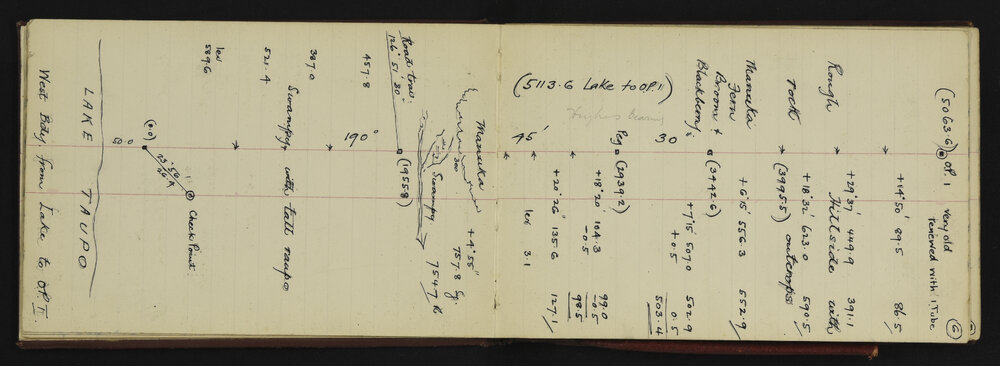 6
(5063.6) OP. 1 very old
renewed with 1 Tube
+14° 50' 89.5 86.5
+29° 37' 449.9 391.1
Rough Hillside with
+18° 32' 623.0 590.5
rock (3995.5) outcrops
Manuka +6° 15' 556.3 552.9
Fern
Broom & (3442.6)
Blackberry.
+7° 15' 507.0 502.9
+0.5 0.5
503.4
30
Peg (2939.2)
+18° 20' 104.3 99.0
-0.5 -0.5
98.5
+20° 26' 135.6 127.1
45' lev 3.1
(5113.6 Lake to OP. 1)
Manuka +4° 55"
757.8 Sq.
300 Swampy 754.7
Road trav:
126° 51' 30"
(1955.8)
457.8 190°
387.0
Swampy with tall raupo
521.4
lev
589.6
Check Point
(0.0)
50.0
LAKE TAUPO
West Bdy. from Lake to OP. I.